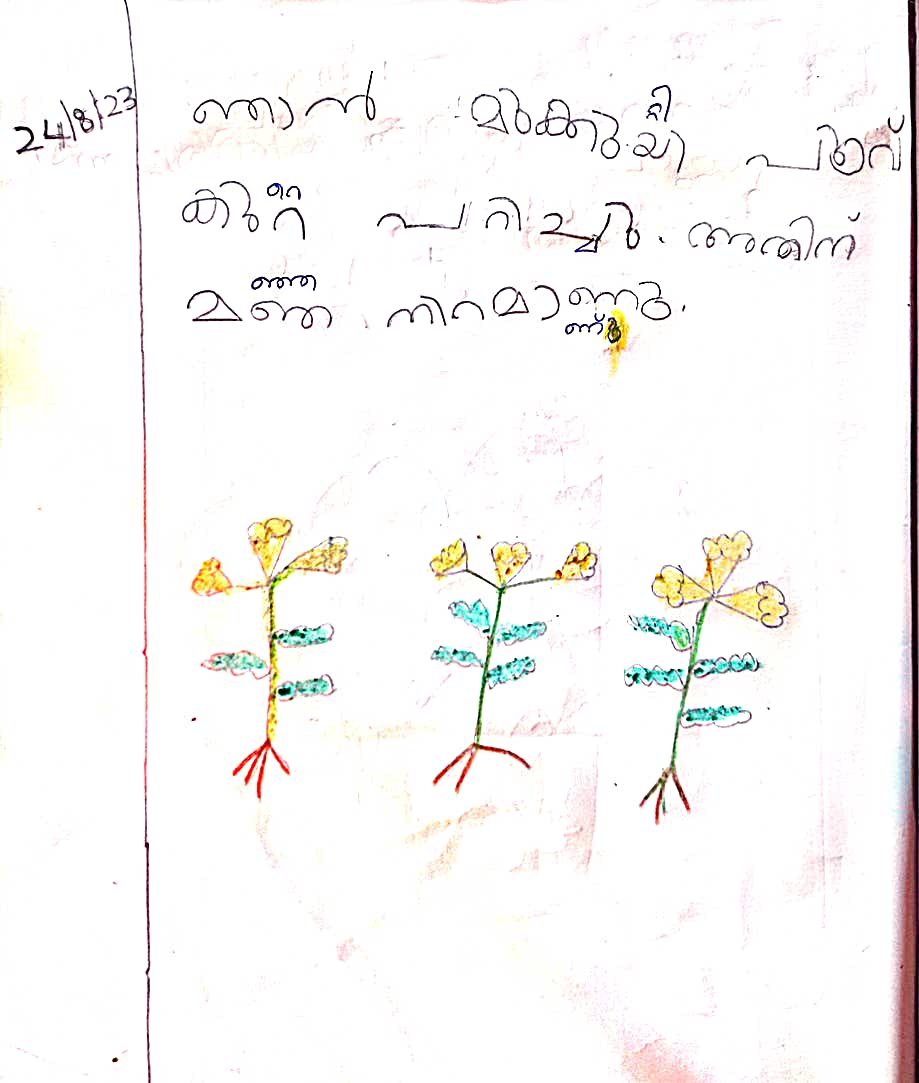 24/8/23
ഞാൻ മുക്കുറ്റി പൂവ്
കുറെ പറിച്ചു. അതിന്
മഞ്ഞ നിറമാണ്.